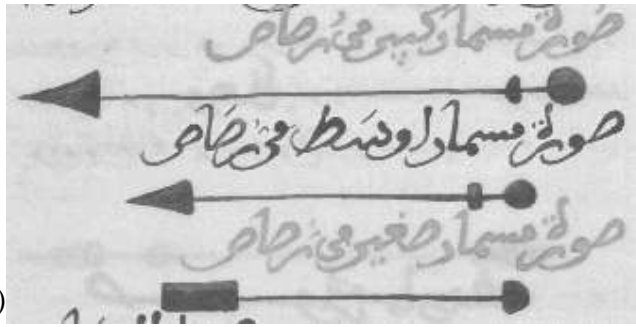 صورة مسمار كبير من رصاص
صورة مسمار اوسط من رصاص
صورة مسمار صغير من رصاص